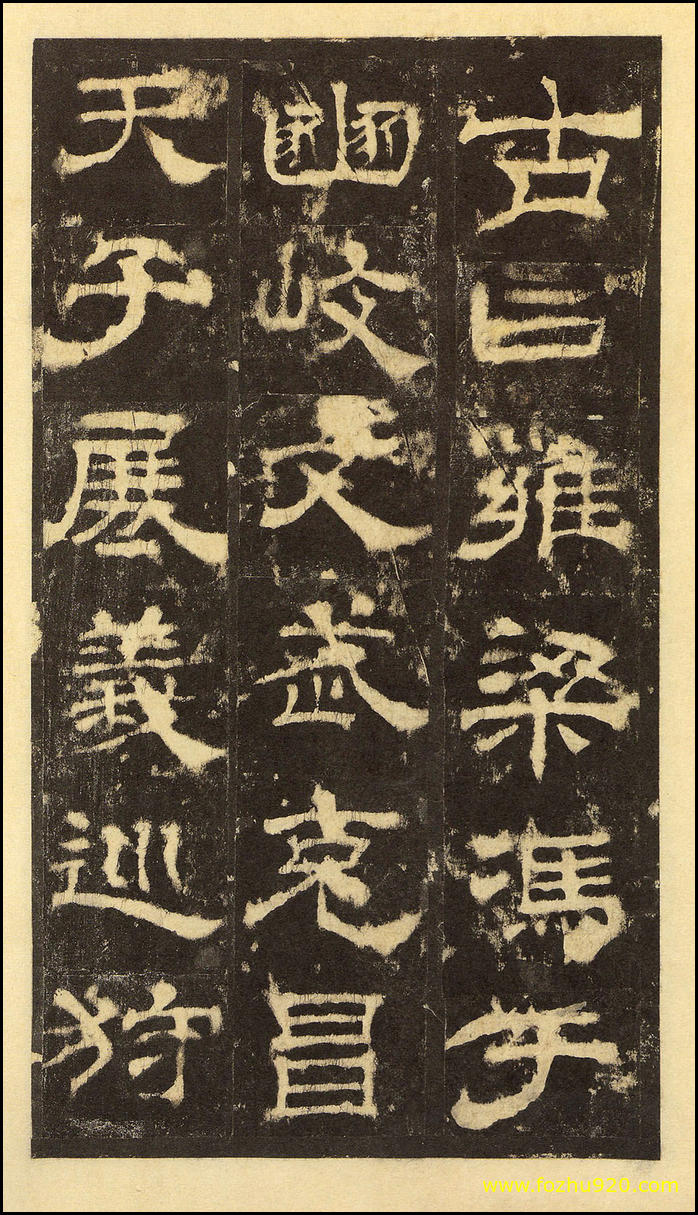 古曰雍梁馮于
豳岐文武克昌
天子展義巡狩
www.fozhu920.com